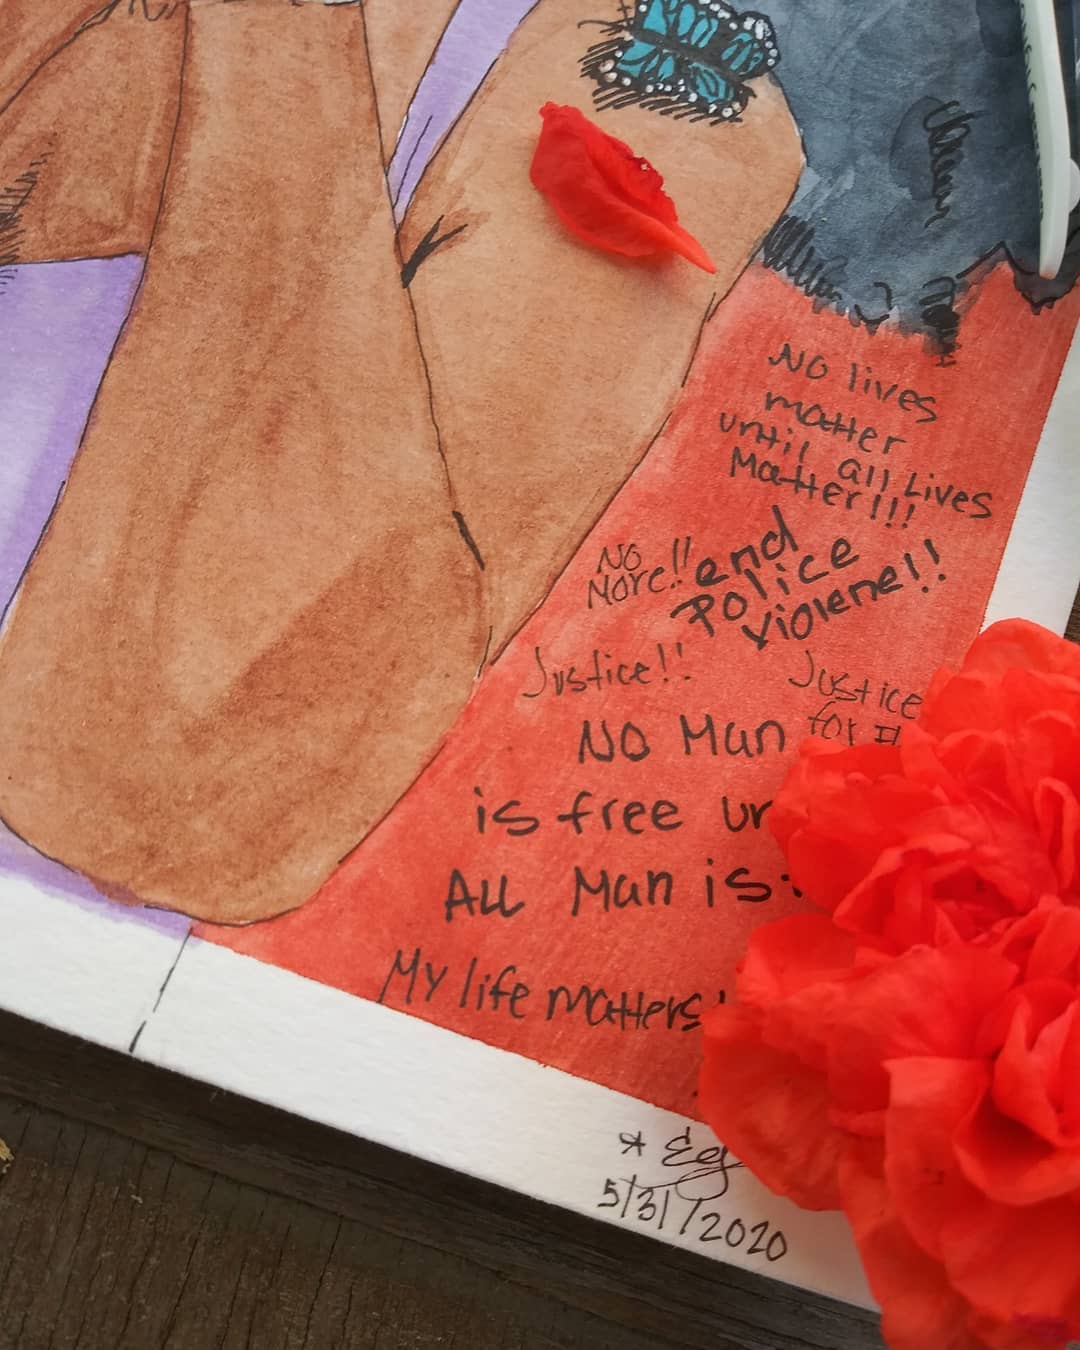 No lives
matter
until all Lives
Matter!!!
No
More!!
end
Police
violene!!
Justice!!
Justice
for
No Man
is free
All Man is
My life matters
5/31/2020